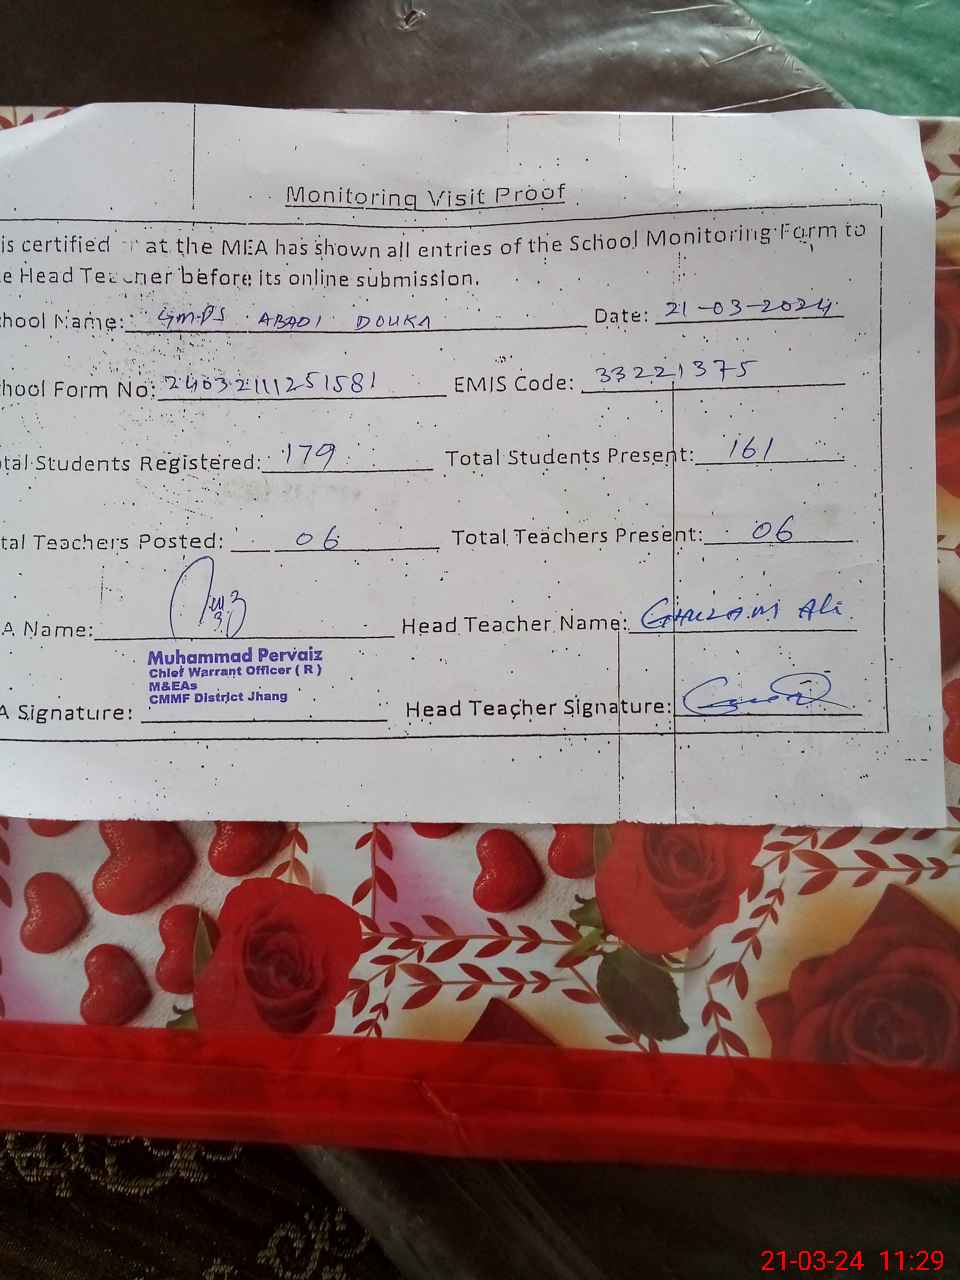 Monitoring Visit Proof
is certified at the MEA has shown all entries of the School Monitoring Form to
e Head Teacher before its online submission.
hool Name: GMPS ABADI DOUKA Date: 21-03-2024
hool Form No: 240321111251581 EMIS Code: 33221375
tal Students Registered: 179 Total Students Present: 161
tal Teachers Posted: 06 Total Teachers Present: 06
A Name: Head Teacher Name: GHULAM Ali
Muhammad Pervaiz
Chief Warrant Officer ( R )
M&EAs
CMMF District Jhang
A Signature: Head Teacher Signature:
21-03-24 11:29